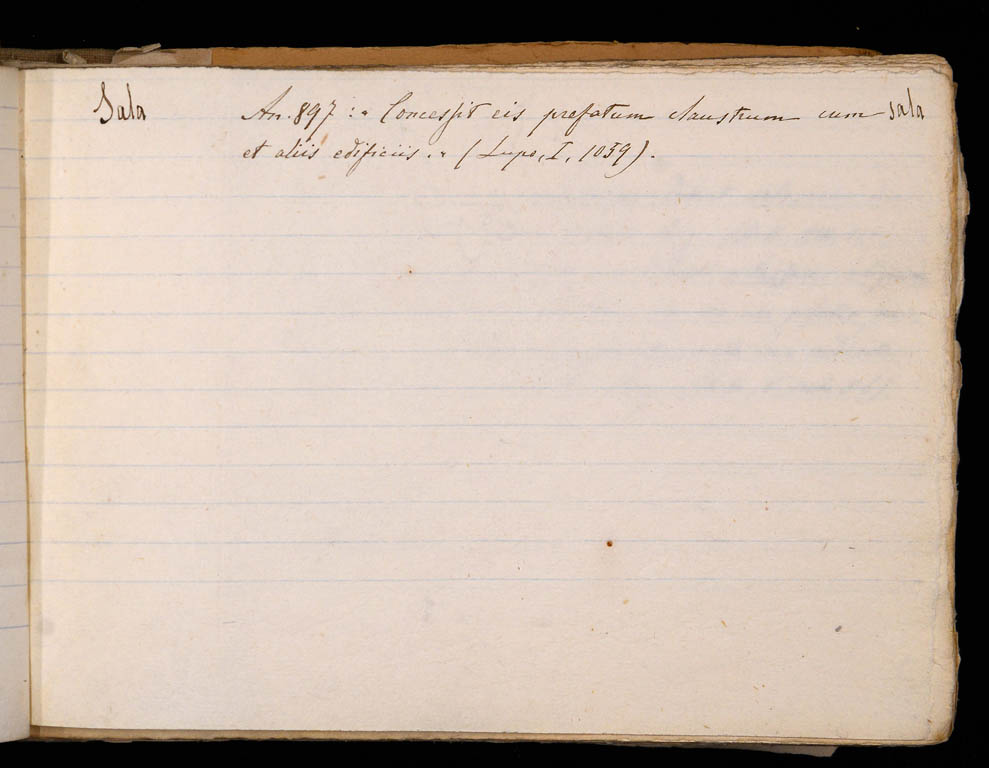 Sala An. 897 : « Concessit eis prefatum claustrum cum sala
et aliis edificiis. » (Lupo, I, 1059).